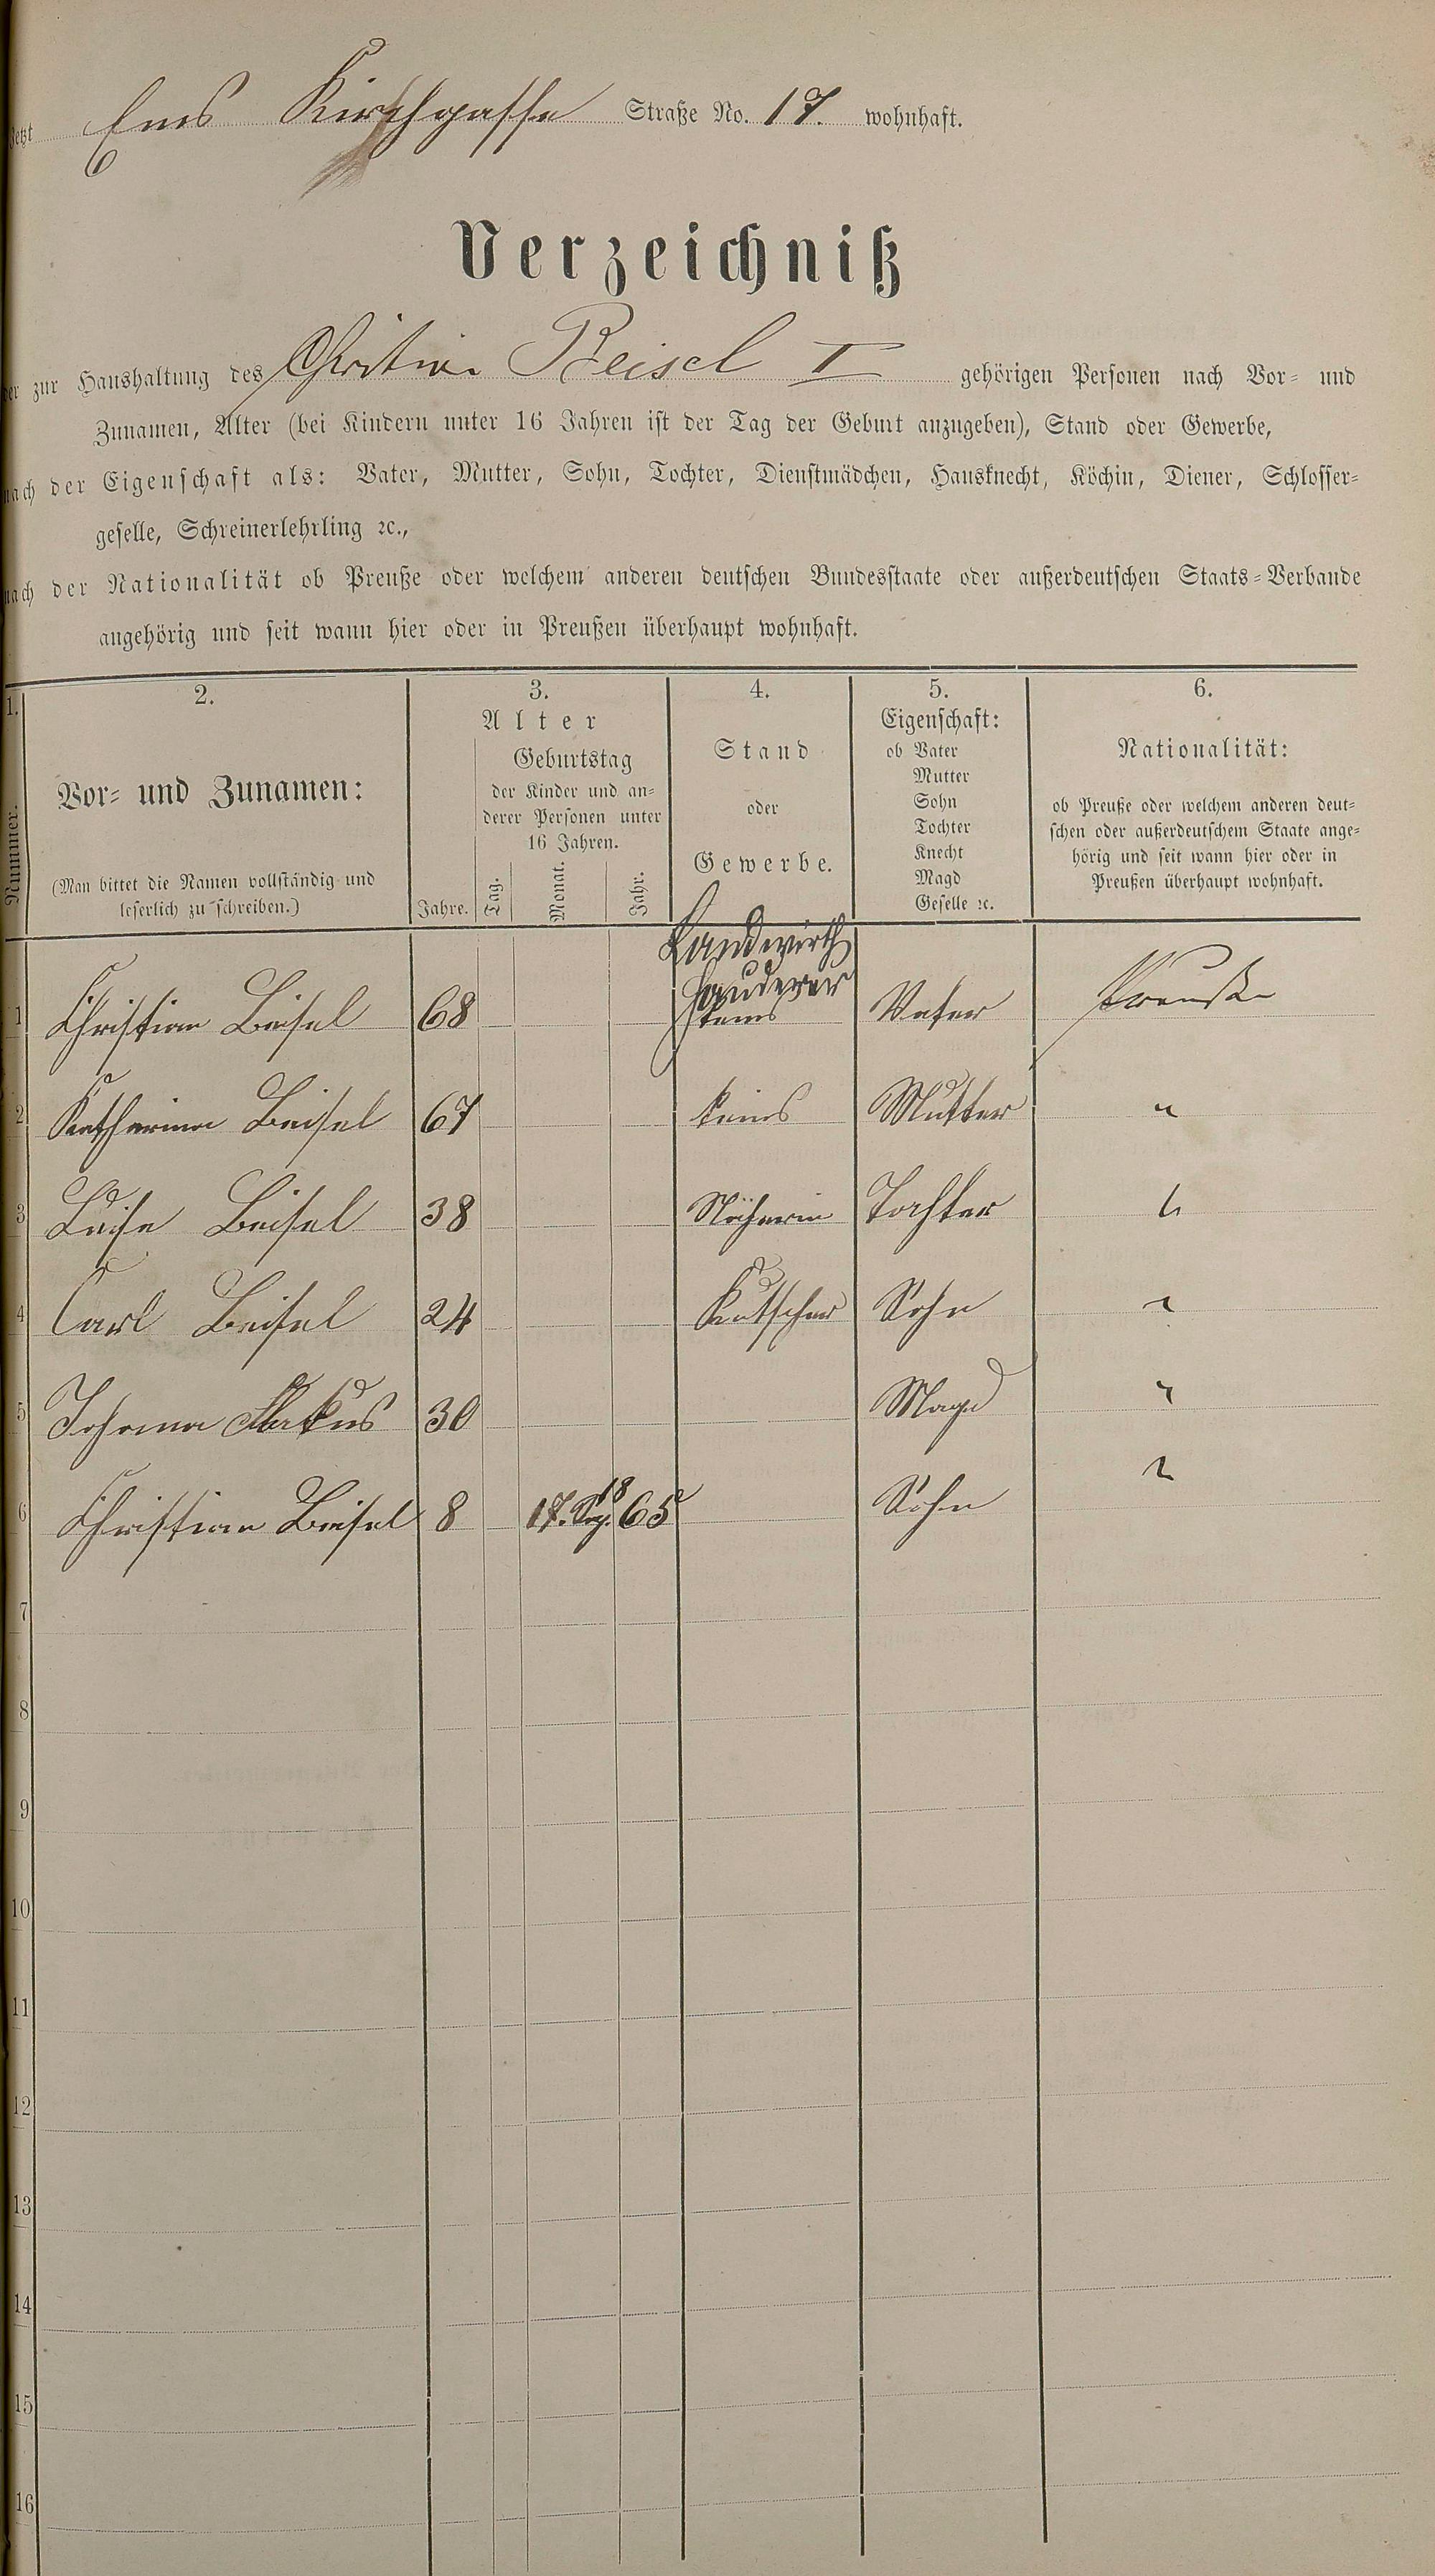 Jetzt Ems Kirchgasse Straße No. 17. wohnhaft.
Verzeichniß
der zur Haushaltung des Christian Beisel I gehörigen Personen nach Vor- und
Zunamen, Alter (bei Kindern unter 16 Jahren ist der Tag der Geburt anzugeben), Stand oder Gewerbe,
nach der Eigenschaft als: Vater, Mutter, Sohn, Tochter, Dienstmädchen, Hausknecht, Köchin, Diener, Schlosser-
geselle, Schreinerlehrling ꝛc.,
nach der Nationalität ob Preuße oder welchem anderen deutschen Bundesstaate oder außerdeutschen Staats-Verbande
angehörig und seit wann hier oder in Preußen überhaupt wohnhaft.
1. 2. 3. 4. 5. 6.
Nummer.
Vor- und Zunamen:
(Man bittet die Namen vollständig und
leserlich zu schreiben.)
Alter
Geburtstag
der Kinder und an-
derer Personen unter
16 Jahren.
Jahre. Tag. Monat. Jahr.
Stand
oder
Gewerbe.
Eigenschaft:
ob Vater
Mutter
Sohn
Tochter
Knecht
Magd
Geselle ꝛc.
Nationalität:
ob Preuße oder welchem anderen deut-
schen oder außerdeutschem Staate ange-
hörig und seit wann hier oder in
Preußen überhaupt wohnhaft.
Landwirth
Hauderer
1 Christian Beisel 68 keins Vater Preuße
2 Katharina Beisel 67 keins Mutter "
3 Luise Beisel 38 Näherin Tochter "
4 Carl Beisel 24 Kutscher Sohn "
5 Johanna 30 Magd "
18
6 Christian Beisel 8 17. 65 Sohn "
7
8
9
10
11
12
13
14
15
16